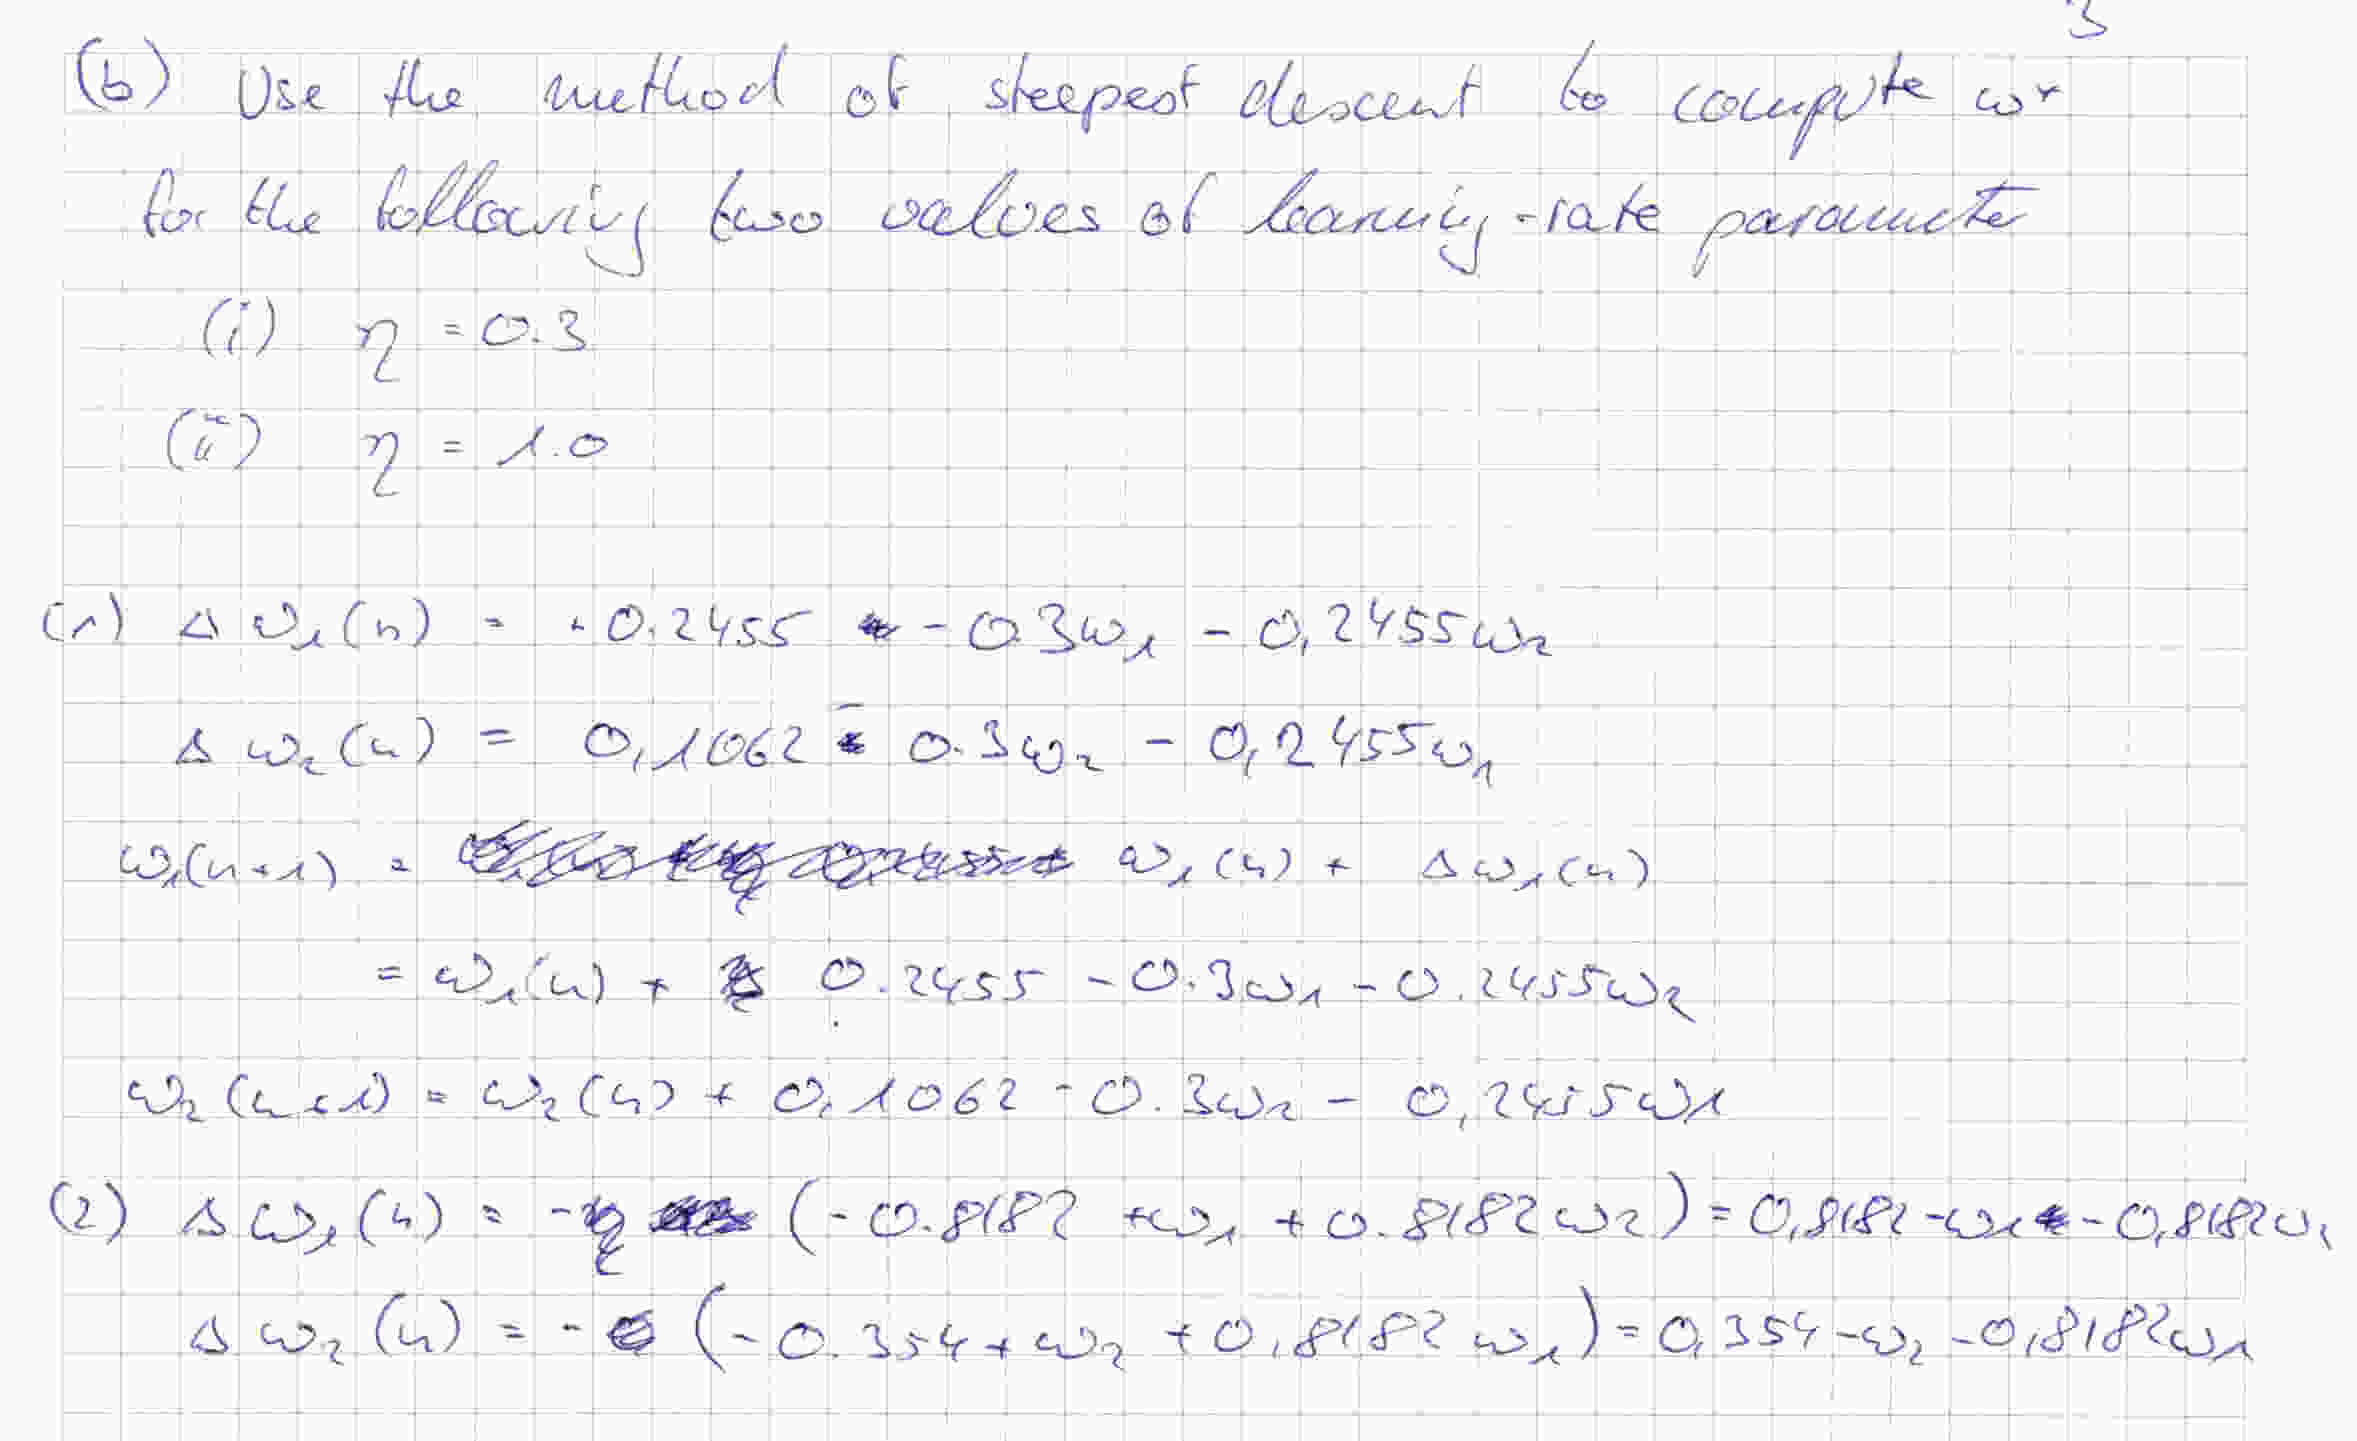 3
(b) Use the method of steepest descent to compute w*
for the following two values of learning-rate parameter
(i) η = 0.3
(ii) η = 1.0
(1) Δw₁(n) = +0.2455 - 0.3w₁ - 0,2455w₂
Δw₂(n) = 0,1062 - 0.3w₂ - 0,2455w₁
w₁(n+1) = w₁(n) + Δw₁(n)
= w₁(n) + 0.2455 - 0.3w₁ - 0.2455w₂
w₂(n+1) = w₂(n) + 0,1062 - 0.3w₂ - 0,2455w₁
(2) Δw₁(n) = - (-0.8182 + w₁ + 0.8182w₂) = 0,8182 - w₁ - 0,8182w₂
Δw₂(n) = - (-0.354 + w₂ + 0,8182w₁) = 0,354 - w₂ - 0,8182w₁